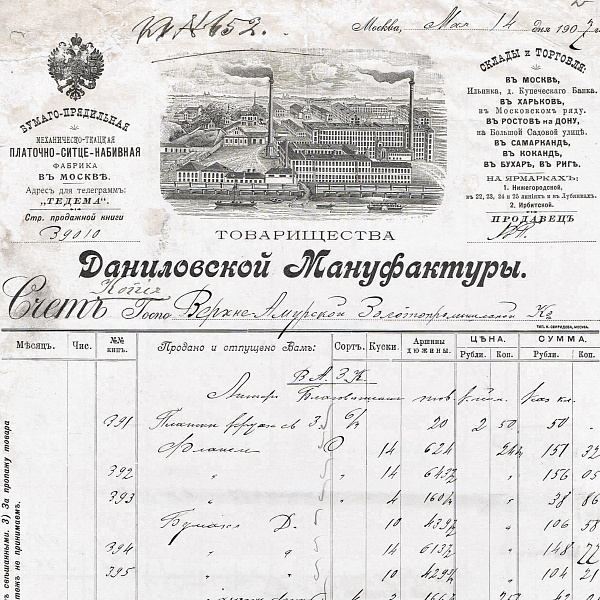 КА №652.
Москва, Мая 14 дня 1907 г.
БУМАГО-ПРЯДИЛЬНАЯ
МЕХАНИЧЕСКО-ТКАЦКАЯ
ПЛАТОЧНО-СИТЦЕ-НАБИВНАЯ
ФАБРИКА
ВЪ МОСКВѢ.
Адресъ для телеграммъ:
"ТЕДЕМА".
Стр. продажной книги
39010
СКЛАДЫ и ТОРГОВЛЯ:
ВЪ МОСКВѢ,
Ильинка, д. Купеческаго Банка.
ВЪ ХАРЬКОВѢ,
въ Московскомъ ряду.
ВЪ РОСТОВѢ на ДОНУ,
на Большой Садовой улицѣ.
ВЪ САМАРКАНДѢ,
ВЪ КОКАНДѢ,
ВЪ БУХАРѢ, ВЪ РИГѢ.
НА ЯРМАРКАХЪ:
1. Нижегородской,
въ 22, 23, 24 и 25 линіяхъ и въ Лубянкахъ.
2. Ирбитской.
ПРОДАВЕЦЪ
ТОВАРИЩЕСТВА
Даниловской Мануфактуры.
Копія
Счетъ Госпо Верхне-Амурской Золотопромышленной Ко
ТИП. Н. СВИРИДОВА, МОСКВА.
Мѣсяцъ. Чис. №№ кипъ. Продано и отпущено Вамъ: Сортъ. Куски. Аршины дюжины. ЦѢНА. СУММА.
Рубли. Коп. Рубли. Коп.
В А З К
391 20 2 50 50 -
Фланели 14 624 151 32
392 " 14 643½ " 156 05
393 " " 4 160¼ " 38 86
Бумазе Д. 10 439½ " 106 58
394 " " 14 613½ " 148 77
395 " " 10 429¾ " 104 21
ъ сѣшанными. 3) За пропажу товара
тежъ не принимаемъ.